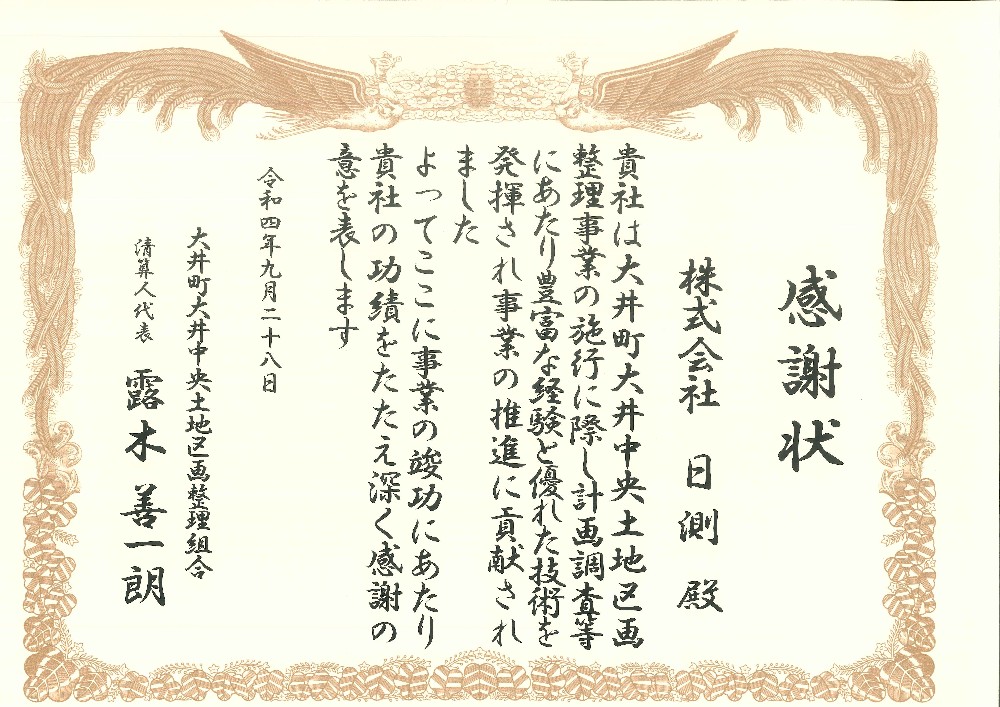 感謝状
株式会社 日測 殿
貴社は大井町大井中央土地区画
整理事業の施行に際し計画調査等
にあたり豊富な経験と優れた技術を
発揮され事業の推進に貢献され
ました
よってここに事業の竣功にあたり
貴社の功績をたたえ深く感謝の
意を表します
令和四年九月二十八日
大井町大井中央土地区画整理組合
清算人代表 露木 善一朗